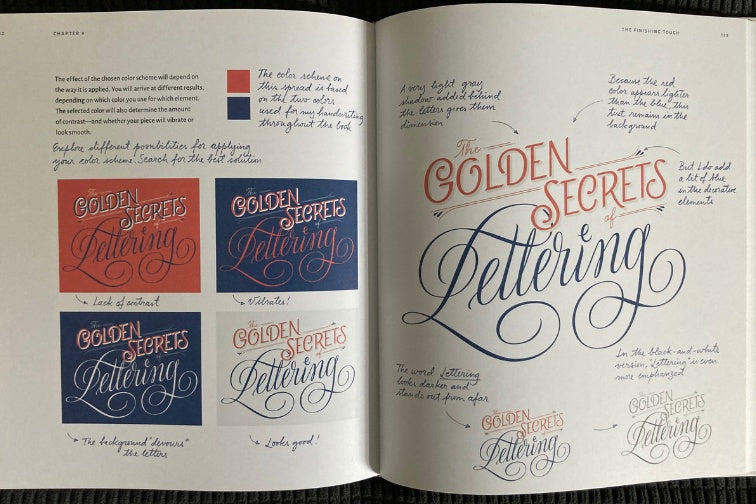 CHAPTER 6
The effect of the chosen color scheme will depend on
the way it is applied. You will arrive at different results,
depending on which color you use for which element.
The selected color will also determine the amount
of contrast—and whether your piece will vibrate or
look smooth.
The color scheme on
this spread is based
on the two colors
used for my handwriting
throughout the book
Explore different possibilities for applying
your color scheme. Search for the best solution
The
GOLDEN
SECRETS
of
Lettering
Lack of contrast
The
GOLDEN
SECRETS
of
Lettering
Vibrates!
The
GOLDEN
SECRETS
of
Lettering
The background "devours"
the letters
The
GOLDEN
SECRETS
of
Lettering
Looks good!
THE FINISHING TOUCH
A very light gray
shadow added behind
the letters gives them
dimension
Because the red
color appears lighter
than the blue, this
text remains in the
background
But I do add
a bit of blue
in the decorative
elements
The
GOLDEN
SECRETS
of
Lettering
The word Lettering
looks darker and
stands out from afar
In the black-and-white
version, "Lettering" is even
more emphasized
The
GOLDEN
SECRETS
of
Lettering
The
GOLDEN
SECRETS
of
Lettering